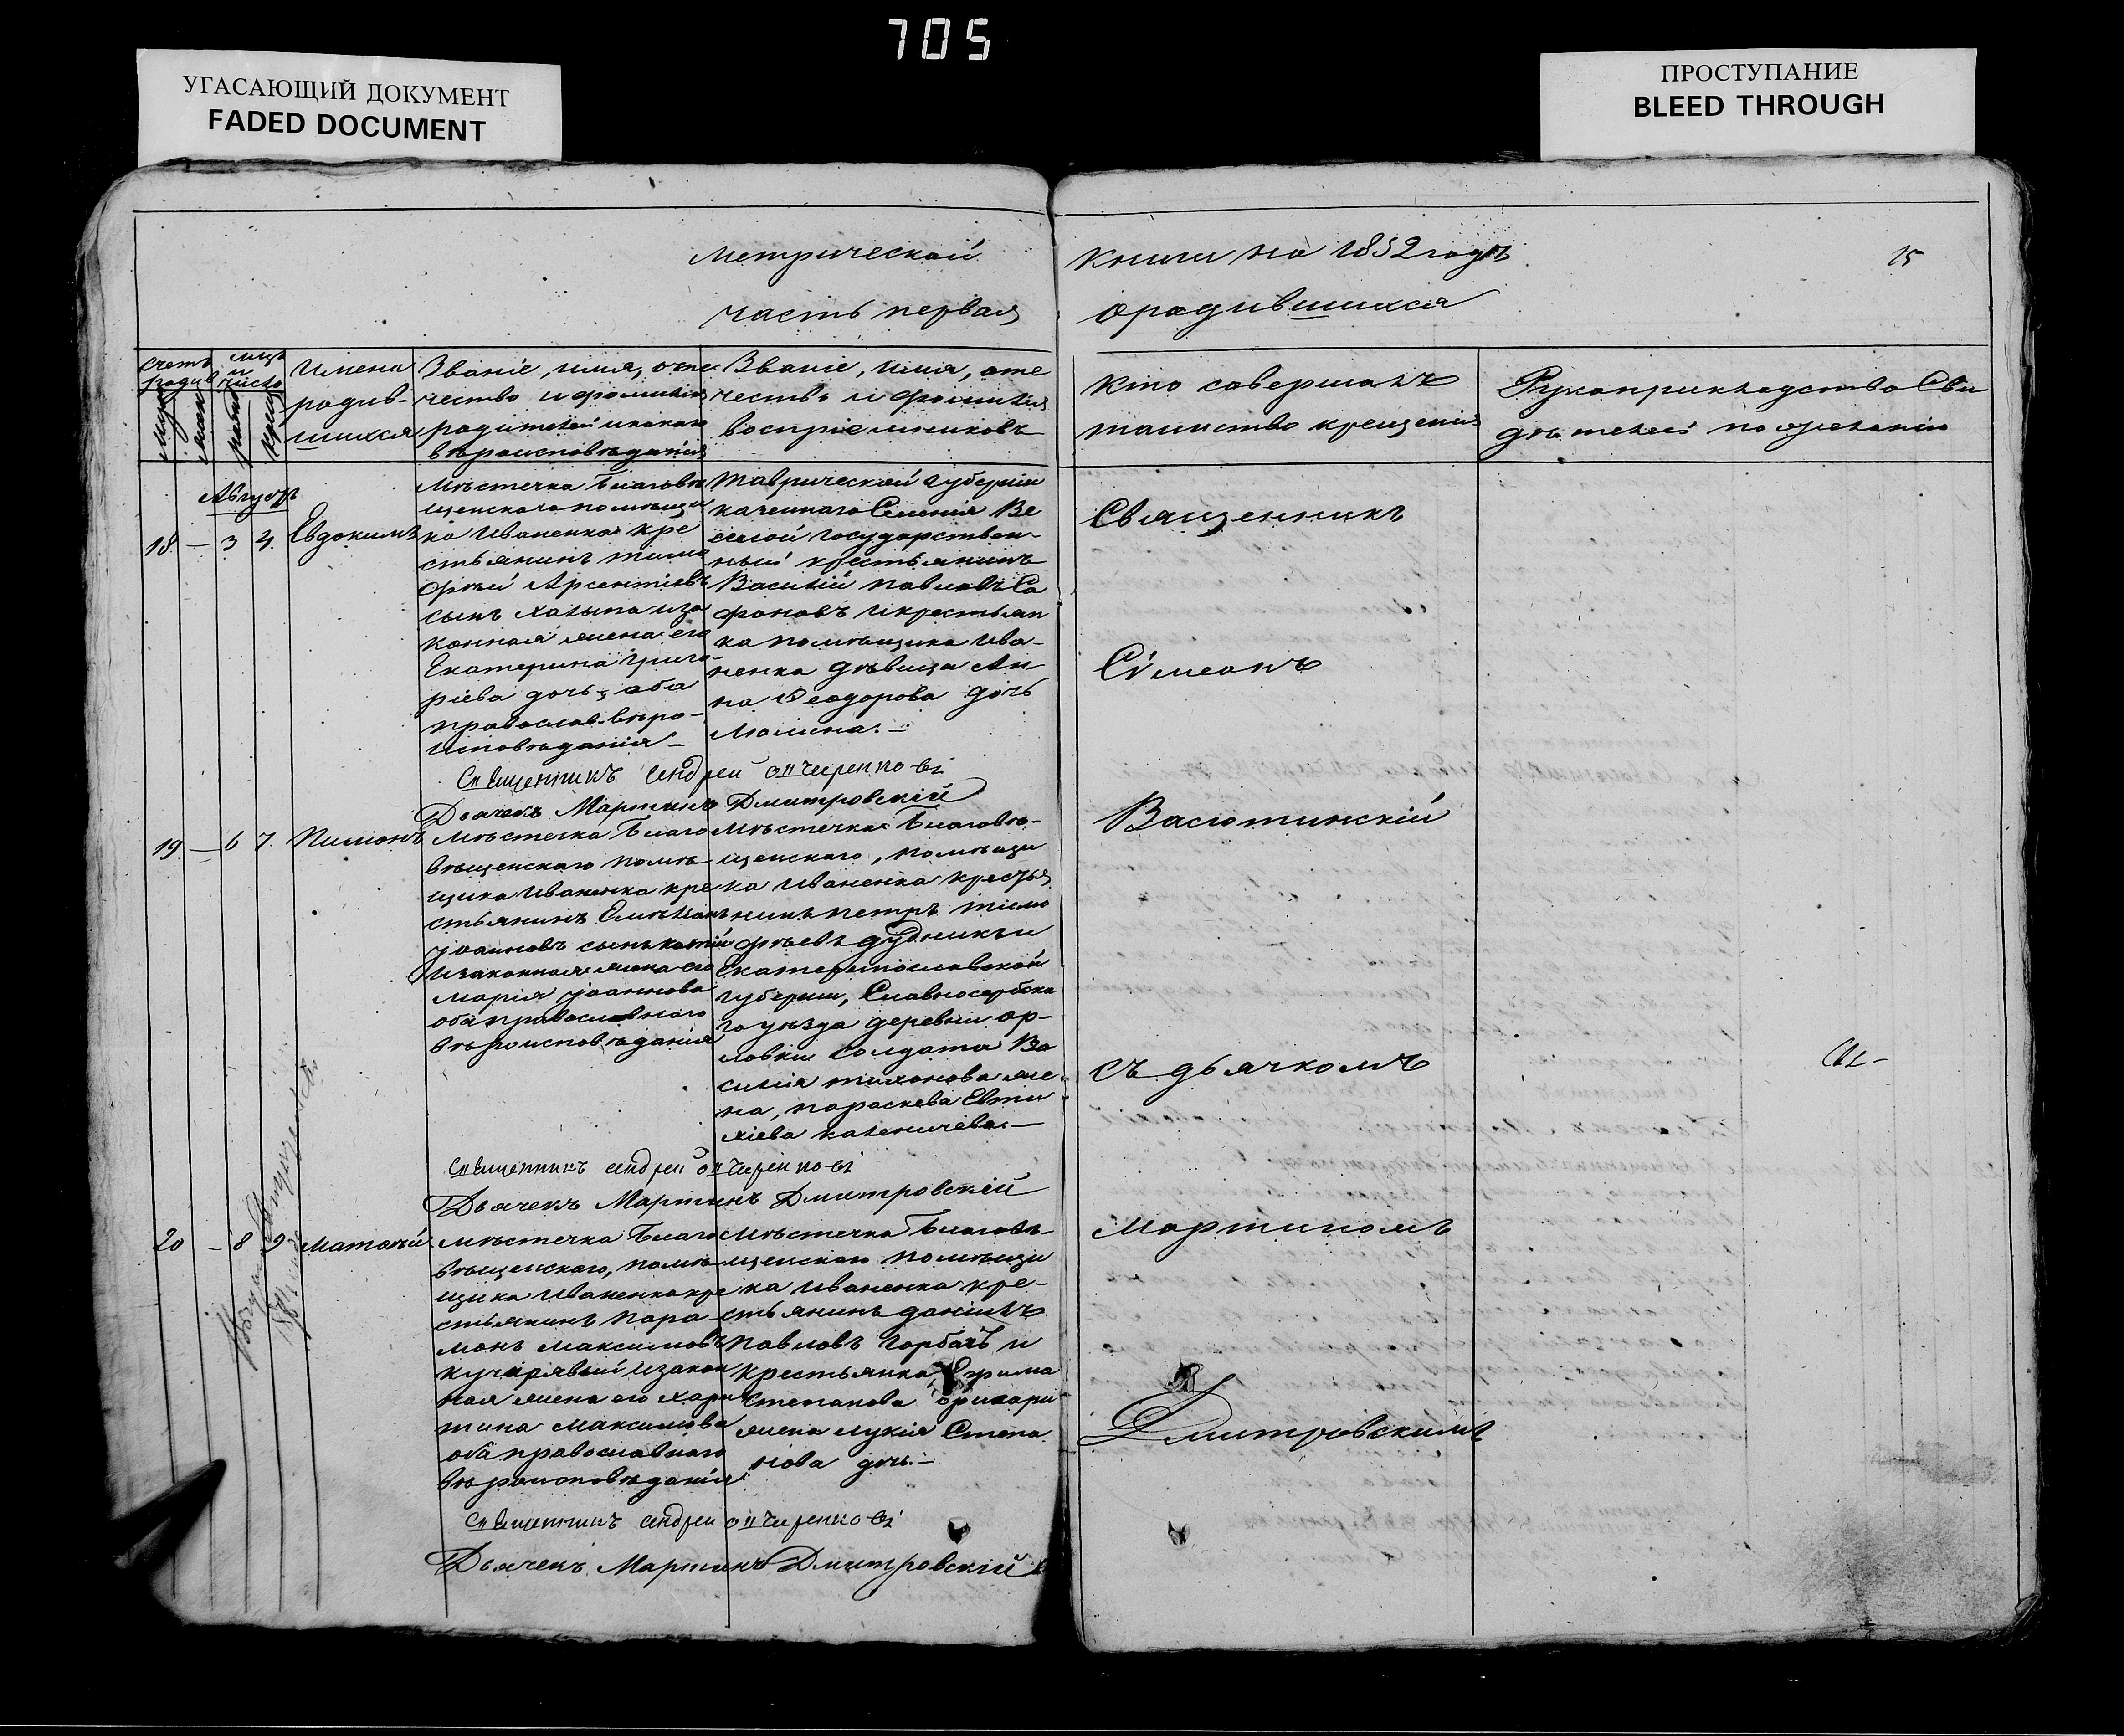 705
УГАСАЮЩИЙ ДОКУМЕНТ
FADED DOCUMENT
ПРОСТУПАНИЕ
BLEED THROUGH
Метрической
книги на 1852 годъ
15
часть первая
о родившихся
Счетъ родив
мцъ и число
Имена
родив-
шихся
Званіе, имя, оте
чество и фамилія
родителей и какого
вѣроисповѣданія
Званіе, имя, оте
чество и фамилія
воспріемниковъ
Кто совершалъ
таинство крещенія
Рукоприкладство Сви
дѣтелей по желанію
Августъ
18 — 3 4. Евдокимъ
Мѣстечка Благовѣ
щенскаго помѣщи
ка Иваненка кре
стьянинъ Тимо
фѣй Арсентіевъ
сынъ и за
конная жена его
Екатерина Григо-
ріева дочь, оба
православ. вѣро-
исповѣданія —
Таврической губерніи
казеннаго Селенія Ве
селой государствен-
ный крестьянинъ
Василій Павловъ Са
фоновъ и крестьян
ка помѣщика Ива-
ненка дѣвица Ан
на Ѳеодорова дочь
Священникъ Андрей
Дьячекъ Мартинъ Дмитровскій
19. — 6 7. Пименъ
Мѣстечка Благо
вѣщенскаго помѣ-
щика Иваненка кре
стьянинъ
Іоанновъ сынъ
и законная жена его
Марія Іоаннова
оба православнаго
вѣроисповѣданія
Мѣстечка Благовѣ-
щенскаго, помѣщи
ка Иваненка крестья
нинъ Петръ Тимо
фѣевъ Дудникъ и
Екатеринославской
губерніи, Славяносербска
го уѣзда деревни Ор-
ловки солдата Ва
силія Тихонова же-
на, Параскева Евти
хіева
Священникъ Андрей
Дьячекъ Мартинъ Дмитровскій
20 — 8 9 Матѳѣй
Мѣстечка Благо
вѣщенскаго, помѣ-
щика Иваненка кре
стьянинъ Пара-
монъ Максимовъ
Кучерявый и закон
ная жена его Хари
тина Максимова
оба православнаго
вѣроисповѣданія
Мѣстечка Благовѣ-
щенскаго помѣщи
ка Иваненка кре-
стьянинъ Даніилъ
Павловъ Горбачъ и
крестьянка
Степанова
жена Лукія Степа
нова дочь. —
Священникъ Андрей
Дьячекъ Мартинъ Дмитровскій
Священникъ
Сѵмеонъ
Васютинскій
съ дьячкомъ
Мартиномъ
Дмитровскимъ